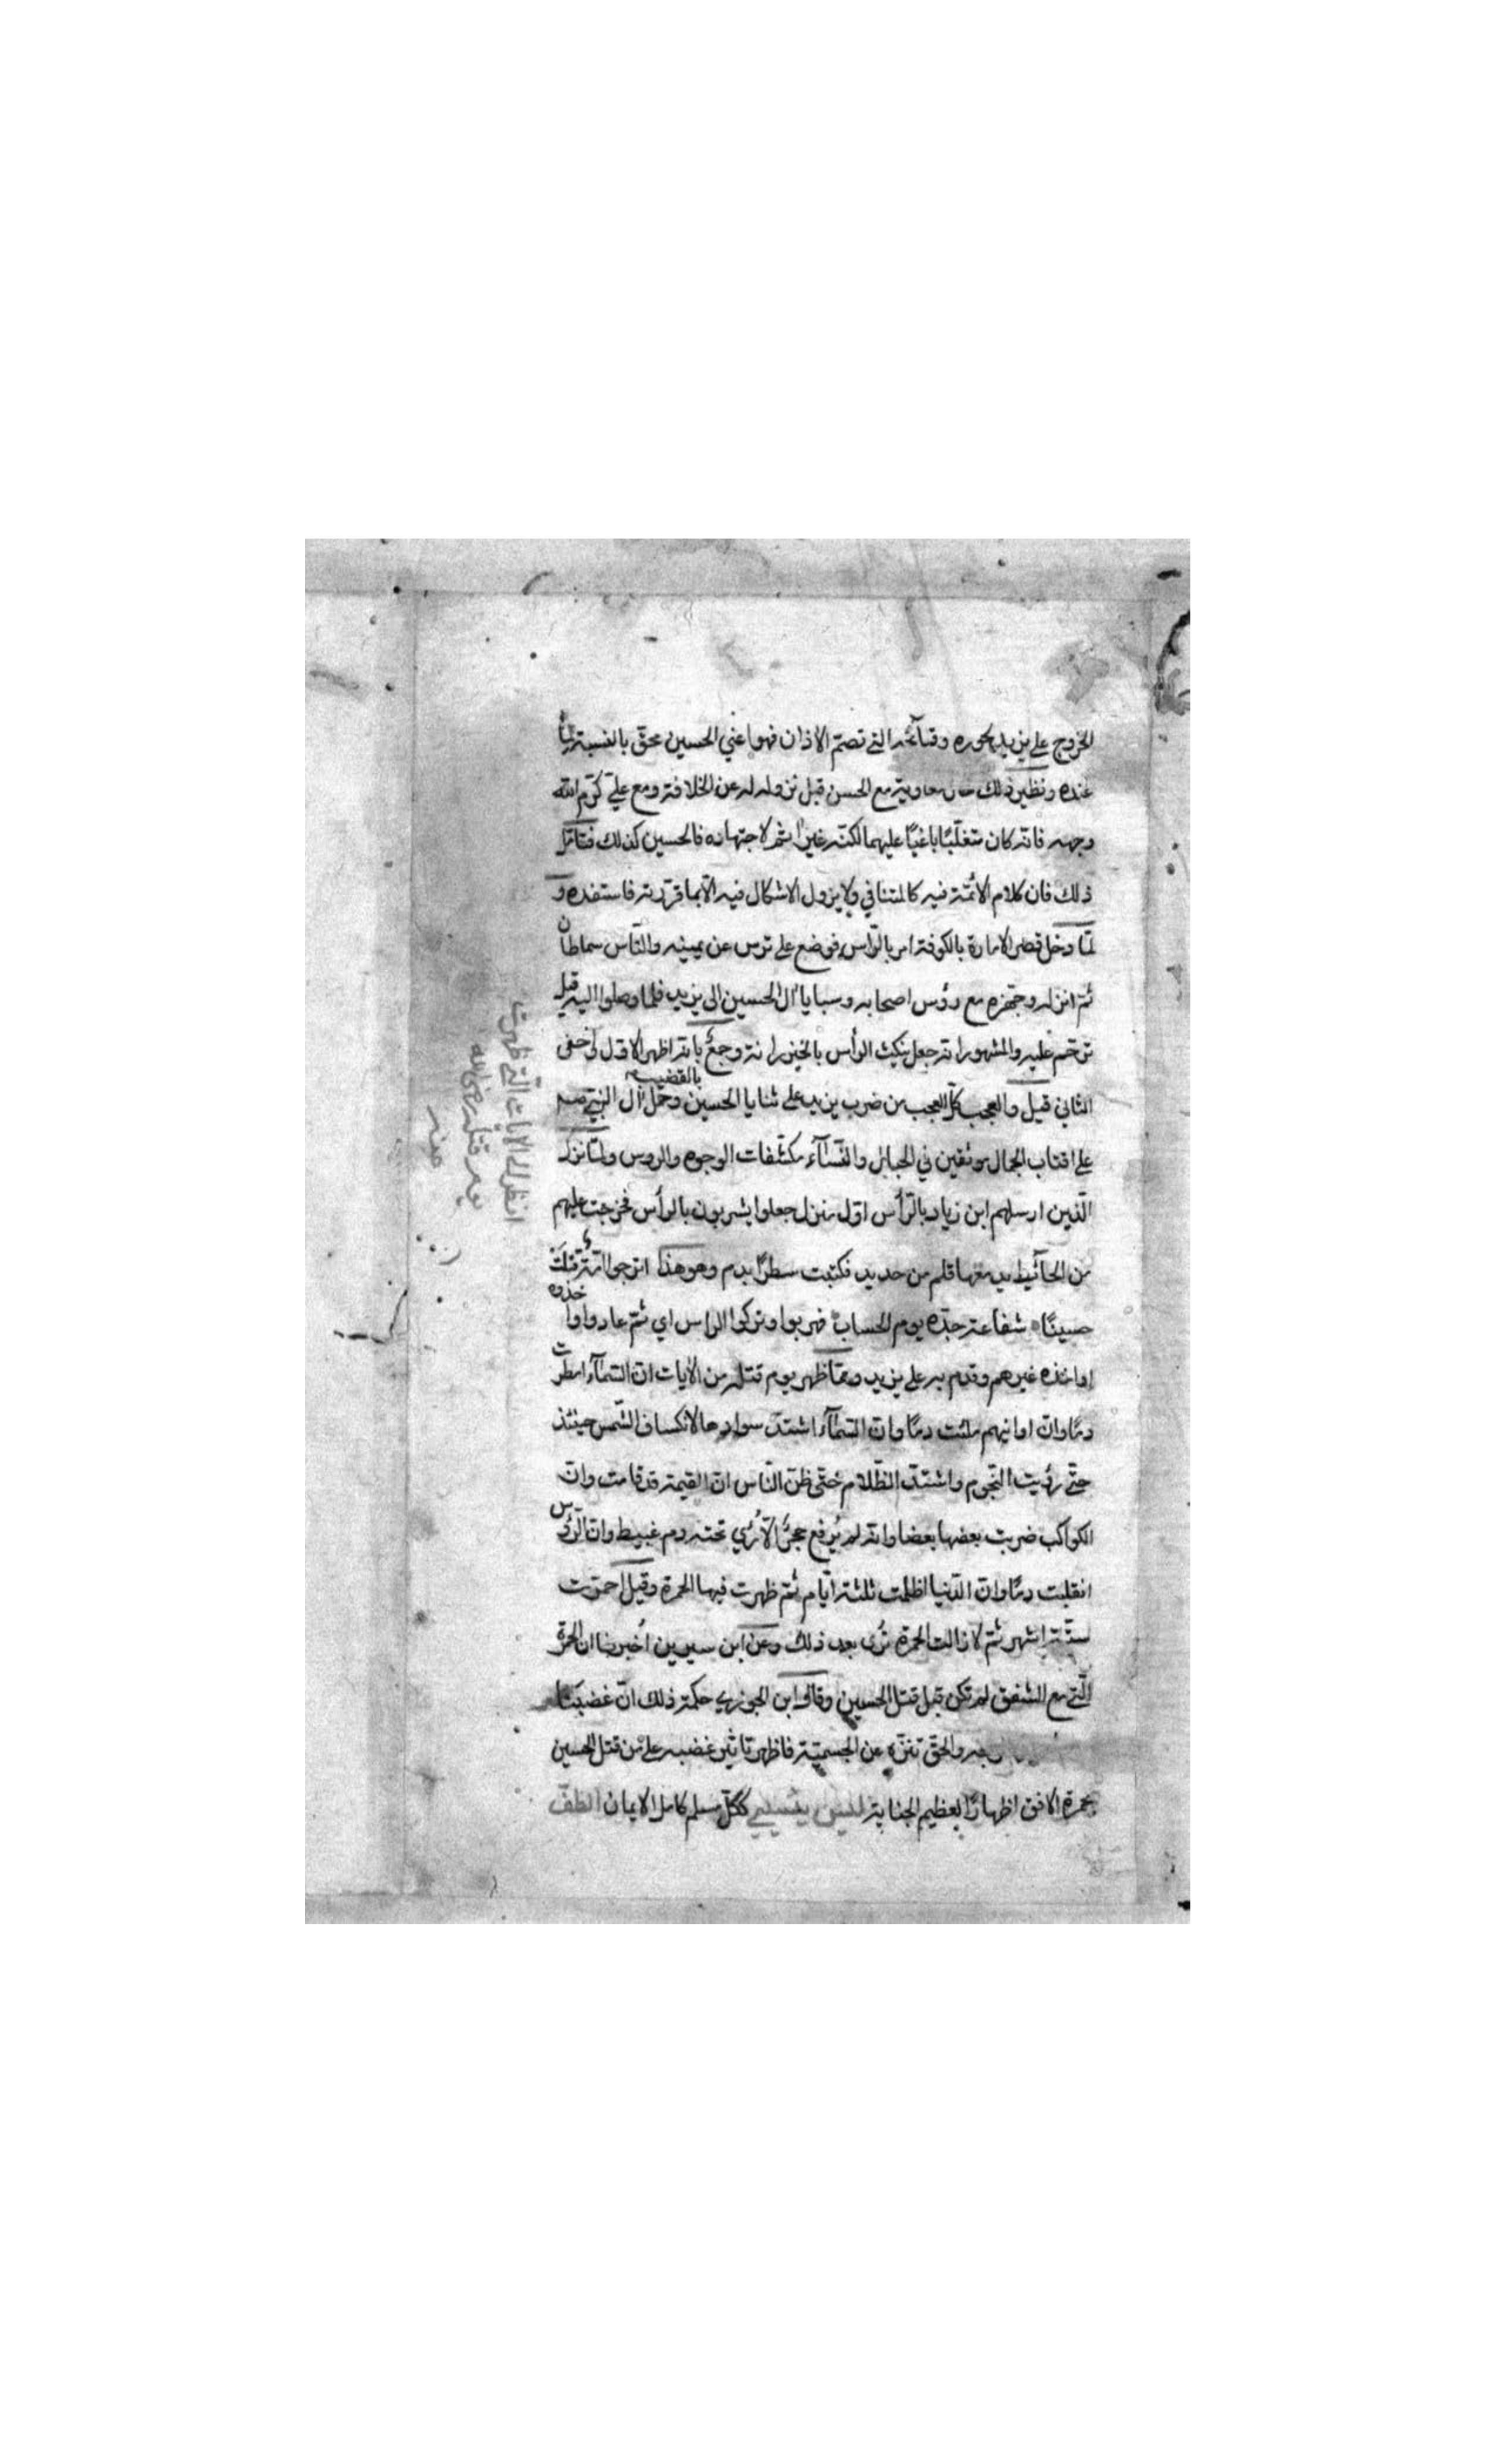 الخروج على يزيد لجوره وقبآئحه التي تصم الاذان فهو اعني الحسين محق بالنسبة لما
عنده ونظير ذلك معاوية مع الحسن قبل نزوله له عن الخلافة ومع علي كرم الله
وجهه فانه كان متغلبًا باغيًا عليهما لكنه غير اثم لاجتهاده فالحسين كذلك فتامل
ذلك فان كلام الائمة فيه كالمتنافي ولا يزول الاشكال فيه الا بما قررته فاستفده و
لمّا دخل قصر الامارة بالكوفة امر بالرّاس فوضع على ترس عن يمينه والناس سماطان
ثم انزله وجهزه مع رؤس اصحابه وسبايا ال الحسين الى يزيد فلما وصلوا اليه قيل
ترحم عليه والمشهور انه جعل ينكث الرأس بالخيزرانة وجمع بانه اظهر الاول واخفى
الثاني قيل والعجب كل العجب من ضرب يزيد على ثنايا الحسين بالقضيب وحمل ال النبي صم
على اقتاب الجمال موثقين في الحبايل والنسآء مكشفات الوجوه والروس ولمّا نزل
الّذين ارسلهم ابن زياد بالرأس اول منزل جعلوا يشربون بالرأس فخرجت عليهم
من الحآئيط يد معها قلم من حديد فكتبت سطرًا بدم وهو هذا اترجوا امّة قتلت
حسينًا شفاعة جدّه يوم الحساب فهربوا وتركوا الراس اي ثم عادوا واخذوه
او اخذه غيرهم وقدم به على يزيد ومما ظهر يوم قتله من الايات ان السّمآء امطرت
دمًا وان اوانيهم ملئت دمًا وان السّمآء اشتدّ سوادها لانكساف الشّمس حينئذ
حتّى رؤيت النّجوم واشتدّ الظّلام حتّى ظن النّاس ان القيمة قد قامت وان
الكواكب ضربت بعضها بعضا وانه لم يُرفع حجرٌ الّا رُئي تحته دم عبيط وان الورس
انقلبت دمًا وان الدّنيا اظلمت ثلثة ايّام ثم ظهرت فيها الحمرة وقيل احمرّت
ستّة اشهر ثم لا زالت الحمرة تُرى بعد ذلك وعن ابن سيرين أخبرنا ان الحمرة
الّتي مع الشفق لم تكن قبل قتل الحسين وقال ابن الجوزي حكمة ذلك ان غضبنا
وجه والحق تنزّه عن الجسميّة فاظهر تاثير غضبه على من قتل الحسين
بحمرة الافق اظهارًا لعظيم الجناية ككل مسلم كامل الايمان الطف
انظر الى الايات التي ظهرت
يوم قتله رضى الله
عنه